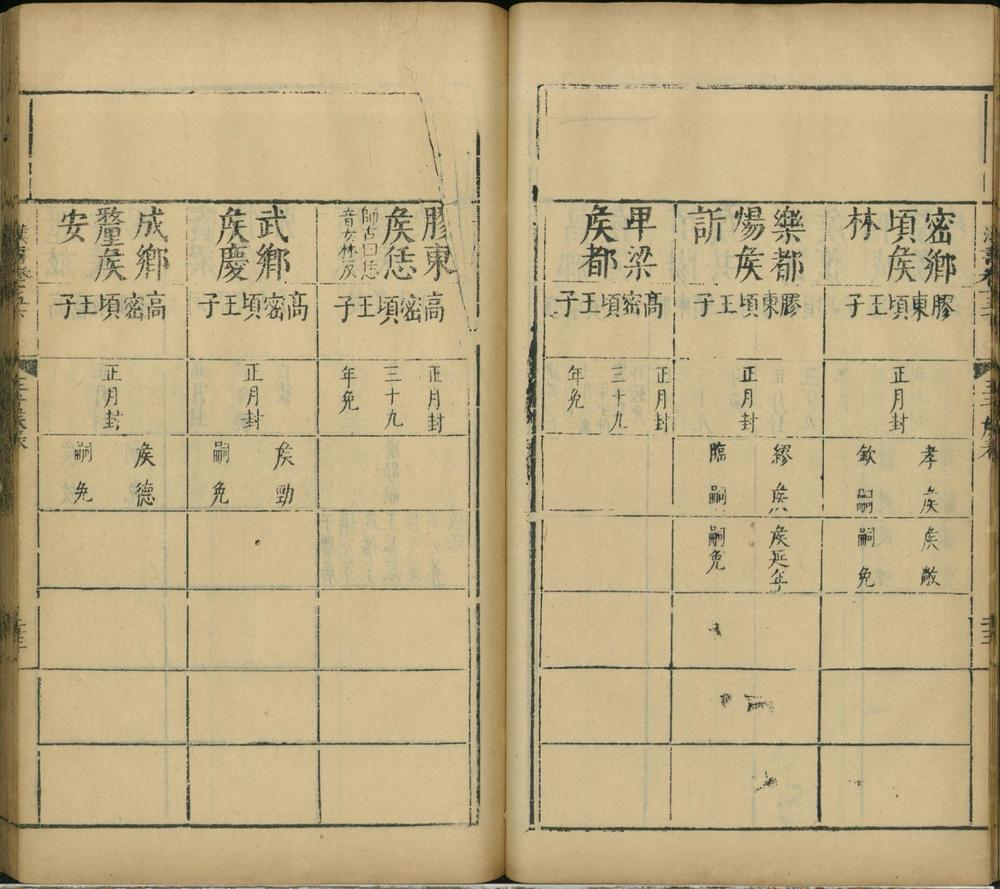 密鄉
頃矦
林
膠東頃王子
正月封
孝矦
欽嗣
矦敞
嗣免
樂都
煬矦
訢
膠東頃王子
正月封
繆矦
臨嗣
矦延年
嗣免
卑梁
矦都
高密頃王子
正月封
三十九
年免
膠東
矦恁
師古曰恁
音女林反
高密頃王子
正月封
三十九
年免
武鄉
矦慶
高密頃王子
正月封
矦勁
嗣免
成鄉
釐矦
安
高密頃王子
正月封
矦德
嗣免